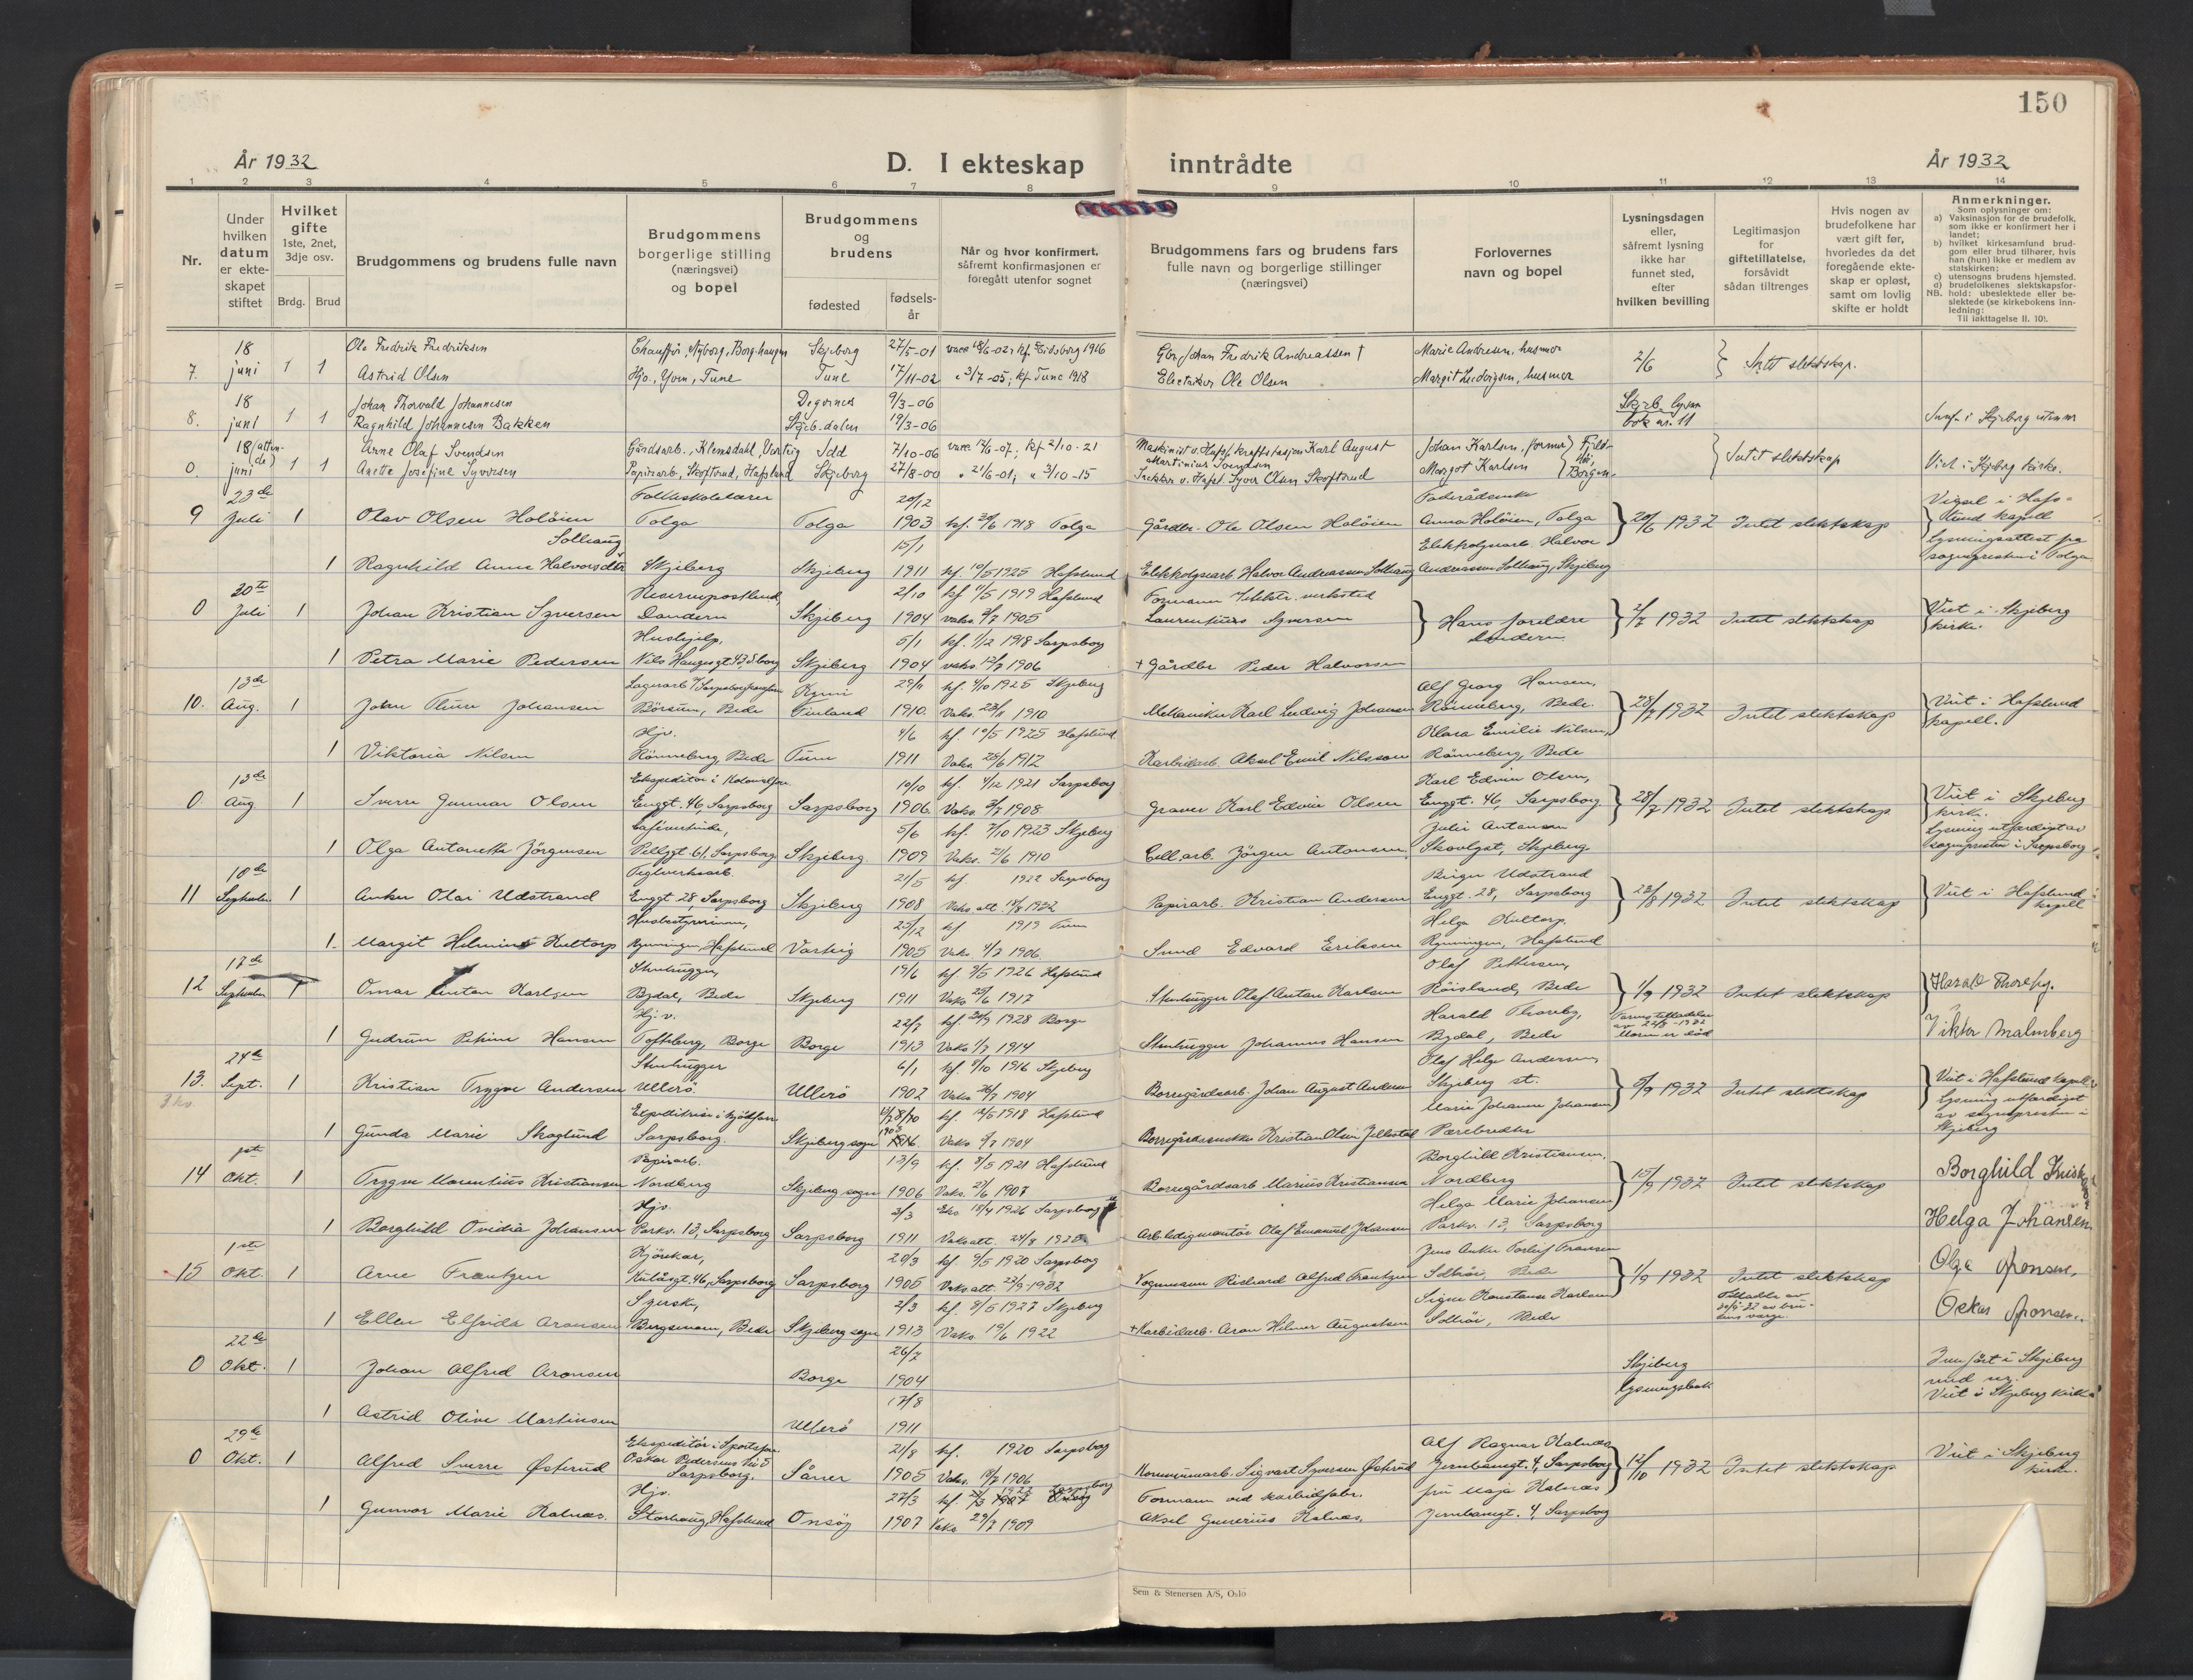 150
År 1932
D. I ekteskap inntrådte
År 1932
1 2 3 4 5 6 7 8 9 10 11 12 13 14
Nr.
Under hvilken datum er ekte- skapet stiftet
Hvilket gifte 1ste, 2net, 3dje osv.
Brdg. Brud
Brudgommens og brudens fulle navn
Brudgommens borgerlige stilling (næringsvei) og bopel
Brudgommens og brudens
fødested
fødsels- år
Når og hvor konfirmert, såfremt konfirmasjonen er foregått utenfor sognet
Brudgommens fars og brudens fars fulle navn og borgerlige stillinger (næringsvei)
Forlovernes navn og bopel
Lysningsdagen eller, såfremt lysning ikke har funnet sted, efter hvilken bevilling
Legitimasjon for giftetillatelse, forsåvidt sådan tiltrenges
Hvis nogen av brudefolkene har vært gift før, hvorledes da det foregående ekte- skap er opløst, samt om lovlig skifte er holdt
Anmerkninger.
Som oplysninger om:
a) Vaksinasjon for de brudefolk, som ikke er konfirmert her i landet;
b) hvilket kirkesamfund brud- gom eller brud tilhører, hvis han (hun) ikke er medlem av statskirken;
c) utensogns brudens hjemsted.
d) brudefolkenes slektskapsfor- hold: ubeslektede eller be- slektede (se kirkebokens inn- ledning:
NB.
Til iakttagelse II. 10).
7. 18 juni 1 Ole Fredrik Fredriksen Chauffør, Nyborg, Borg.haugen Skjeberg 27/5-01 Gbr. Johan Fredrik Andreassen † Marie Andresen, husmor 2/6 Intet slektskap.
1 Astrid Olsen Hjv., Yven, Tune Tune 17/11-02 3/7-05; kf. Tune 1918 Elektriker Ole Olsen Margit Ludvigsen, husmor
8. 18 juni 1 Johan Thorvald Johannesen Degernes 9/3-06 Skjeb. lysn. bok nr. 11
1 Ragnhild Johannesen Bakken Skjeb.dalen 19/3-06
0. 18 (atten- de) juni 1 Arne Olaf Svendsen Gårdsarb., Klemsdahl, Varteig Idd 7/10-06 kf. 2/10-21 Maskinist v. Hafsl. kraftstasjon Karl August Martinius Svendsen Johan Karlsen, former Intet slektskap Viet i Skjeberg kirke.
1 Agette Josefine Syversen Papirarb., Skoftrud, Hafslund Skjeberg 27/8-00 21/6-01; 3/10-15 v. Hafsl. Syver Olsen Skoftrud Margot Karlsen Borgen
9 23de Juli 1 Olav Olsen Holøien Folkeskolelærer Tolga Tolga 20/12 1903 kf. 30/6 1918 Tolga Gårdbr. Ole Olsen Holöien Anna Holöien, Tolga 20/6 1932 Intet slektskap Vigsel i Hafs- lund kapell
Solhaug
1 Ragnhild Anna Halvorsdtr Skjeberg Skjeberg 15/1 1911 kf. 10/5 1925 Hafslund Elektrolysearb. Halvor Andreassen Solhaug Elektrolysearb. Halvor Andreassen Solhaug, Skjeberg Lysningsattest fra sognepresten i Tolga
0 30te Juli 1 Johan Kristian Syversen Reservepostbud, Dondern Skjeberg 2/10 1904 kf 11/5 1919 Hafslund Formann Elektr. verksted Laurentius Syversen Hans forelder Dondern 2/7 1932 Intet slektskap Viet i Skjeberg kirke.
1 Petra Marie Pedersen Hushjelp, Nils Haugesgt 43, S.borg Skjeberg 5/1 1904 kf. 1/12 1918 Sarpsborg vaks 12/7 1906 † Gårdbr Peder Halvorsen
10. 13de Aug. 1 Johan Thure Johansen Börsum, Bede Kymi Finland 29/11 1910. kf. 4/10 1925 Skjeberg Vaks. 1910 Mekaniker Karl Ludvig Johansen Alf Georg Hansen, Rönneberg, Bede 28/7 1932 Intet slektskap Viet i Hafslund kapell.
1 Viktoria Nilsen Hjv. Rönneberg, Bede Tune 4/6 1911 kf. 10/5 1925 Hafslund Vaks. 28/6 1912 Karbidarb. Aksel Emil Nilsson Klara Emilie Nilsen, Rönneberg, Bede
0 13de Aug. 1 Sverre Gunnar Olsen Enggt. 46, Sarpsborg Sarpsborg 10/10 1906 kf. 4/12 1921 Sarpsborg Vaks. 1908 Graver Karl Edvin Olsen Karl Edvin Olsen, Enggt. 46, Sarpsborg 28/7 1932 Intet slektskap Viet i Skjeberg kirke.
1 Olga Antonette Jörgensen Kafévertinde, Pellygt. 61, Sarpsborg Skjeberg. 5/6 1909 kf. 7/10 1923 Skjeberg Vaks. 21/6 1910 Cell.arb. Jörgen Antonsen Julie Antonsen Skovlyst, Skjeberg Lysning utferdiget av sognepresten i Sarpsborg
11 10de September 1 Anker Olai Udstrand Teglverksarb. Enggt 28, Sarpsborg Skjeberg 21/5 1908 kf. 1922 Sarpsborg Papirarb. Kristian Andersen Birger Udstrand Enggt. 28, Sarpsborg 23/8 1932 Intet slektskap Viet i Hafslund kapell
1. Margit Helmine Kultorp Husbestyrerinne, Rynningen, Hafslund Varteig 25/12 1905 kf 1919 Tune Vaks 4/7 1906. Smed Edvard Eriksen Helga Kultorp. Rynningen, Hafslund
12 17de September 1 Omar Anton Karlsen Stenhugger, Bydal, Bede Skjeberg 19/6 1911 kf. 9/5 1926 Hafslund Vaks 1917 Stenhugger Olaf Anton Karlsen Olaf Pettersen, Röisland, Bede 1/9 1932 Intet slektskap Harald Thoreby.
1 Gudrun Petrine Hansen Hj.v. Tofteberg, Borge Borge 22/7 1913 kf. 30/9 1928 Borge Vaks 1/7 1914 Stenhugger Johannes Hansen Harald Thoreby, Bydal, Bede Farens tillatelse av 22/8-1932 Moren er död Viktor Malmberg
13. 24de Sept. 1 Kristian Trygve Andersen Stenhugger Ullerö Ullerö 6/1 1902 kf 8/10 1916 Skjeberg Vaks 26/7 1904 Borregårdsarb. Johan August Andersen Olaf Helge Andersen, Skjeberg st. 5/9 1932 Intet slektskap Viet i Hafslund kapell.
1 Gunda Marie Skoglund Sarpsborg. Skjeberg sogn kf. 12/5 1918 Hafslund Vaks 6/7 1904 Kristian Olsen Marie Johanne Johansen Lysning utferdiget av sognepresten i Skjeberg
14 1ste Okt. 1 Trygve Marentius Kristiansen Papirarb. Nordberg Skjeberg sogn 13/9 1906 kf. 8/5 1921 Hafslund Vaks. 27/6 1907 Borregårdsarb Marius Kristiansen Borghild Kristiansen, Nordberg 15/9 1932 Intet slektskap Borghild Kristiansen
1 Borghild Ovidia Johansen Hjv. Parkv. 13, Sarpsborg Sarpsborg 3/3 1911 18/4 1926 Sarpsborg Vaks att. 24/8 1920 Arb.ledig montör Olaf Emanuel Johansen Helga Marie Johansen Parkv. 13, Sarpsborg Helga Johansen
15 1ste Okt. 1 Arne Frantzen Kjörekar, Kulåsgt. 46, Sarpsborg Sarpsborg 20/3 1905 kf. 9/5 1920 Sarpsborg Vaks att. 23/9-1932 Vognmann Richard Alfred Frantzen Jens Anker Torleif Fransen 1/9 1932 Intet slektskap Olga Aronsen,
1 Ellen Elfrida Aronsen Syerske, Borgsmoen, Bede Skjeberg sogn 2/3 1913 kf. 8/5 1927 Skjeberg Vaks 19/6 1922 † Karbidarb. Aron Hilmer Augustsen Signe Konstanse Karlsen Oskar Aronsen.
0 22de Okt. 1 Johan Alfred Aronsen Borge 26/7 1904 Skjeberg lysningsbok Innfört i Skjeberg
1 Astrid Olive Martinsen Ullerö 17/8 1911 Viet i Skjeberg kirke
0 29de Okt. 1 Alfred Sverre Østerud Ekspeditör i Sportsfor. Sarpsborg. Såner 21/8 1905 kf. 1920 Sarpsborg Vaks. 18/7 1906 Kommunearb. Sigvart Syversen Østerud Alf Ragnar Kalnæs Jernbanegt. 4, Sarpsborg 12/10 1932 Intet slektskap Viet i Skjeberg kirke.
1 Gunvor Marie Kalnæs. Hjv. Storhaug, Hafslund Onsöy 27/3 1907 Vaks 29/7 1909 Formann ved karbidfabr. Aksel Gunerius Kalnæs. fru Maja Kalnæs Jernbanegt. 4, Sarpsborg
Sem & Stenersen A/S, Oslo